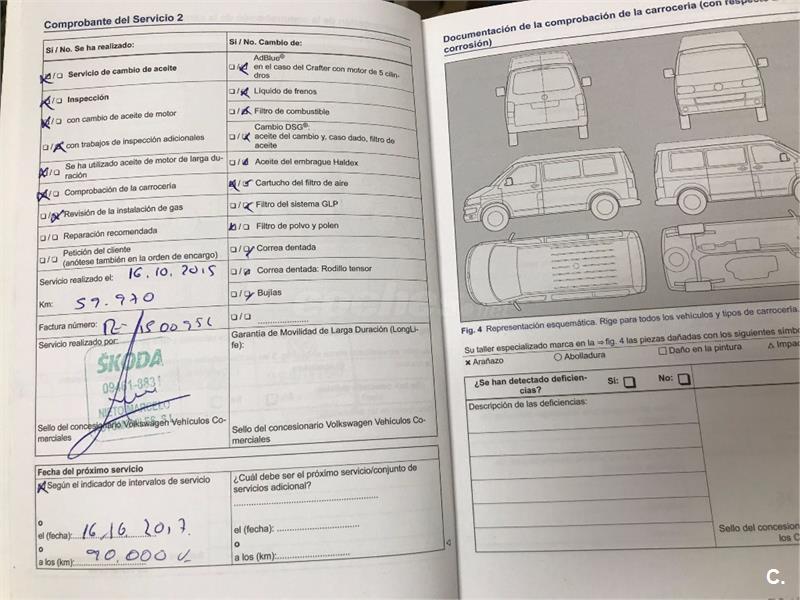 Comprobante del Servicio 2
Sí / No. Se ha realizado:
Servicio de cambio de aceite
Inspección
con cambio de aceite de motor
con trabajos de inspección adicionales
Se ha utilizado aceite de motor de larga du-
ración
Comprobación de la carrocería
Revisión de la instalación de gas
Reparación recomendada
Petición del cliente
(anótese también en la orden de encargo)
Servicio realizado el: 16.10.2015
Km: 59.970
Factura número:
Servicio realizado por:
ŠKODA
NIETO MARCELO
Sello del concesionario Volkswagen Vehículos Co-
merciales
Sí / No. Cambio de:
AdBlue®
en el caso del Crafter con motor de 5 cilin-
dros
Líquido de frenos
Filtro de combustible
Cambio DSG®:
aceite del cambio y, caso dado, filtro de
aceite
Aceite del embrague Haldex
Cartucho del filtro de aire
Filtro del sistema GLP
Filtro de polvo y polen
Correa dentada
Correa dentada: Rodillo tensor
Bujías
Garantía de Movilidad de Larga Duración (LongLi-
fe):
Sello del concesionario Volkswagen Vehículos Co-
merciales
Fecha del próximo servicio
Según el indicador de intervalos de servicio
o
el (fecha): 16.10.2017
o
a los (km): 90.000
¿Cuál debe ser el próximo servicio/conjunto de
servicios adicional?
el (fecha):
o
a los (km):
Documentación de la comprobación de la carrocería (con respecto a
corrosión)
Fig. 4 Representación esquemática. Rige para todos los vehículos y tipos de carrocería.
Su taller especializado marca en la ⇒ fig. 4 las piezas dañadas con los siguientes símbo
× Arañazo
○ Abolladura
□ Daño en la pintura
△ Impac
¿Se han detectado deficien-
cias?
Sí:
No:
Descripción de las deficiencias:
Sello del concesion
los C
C.